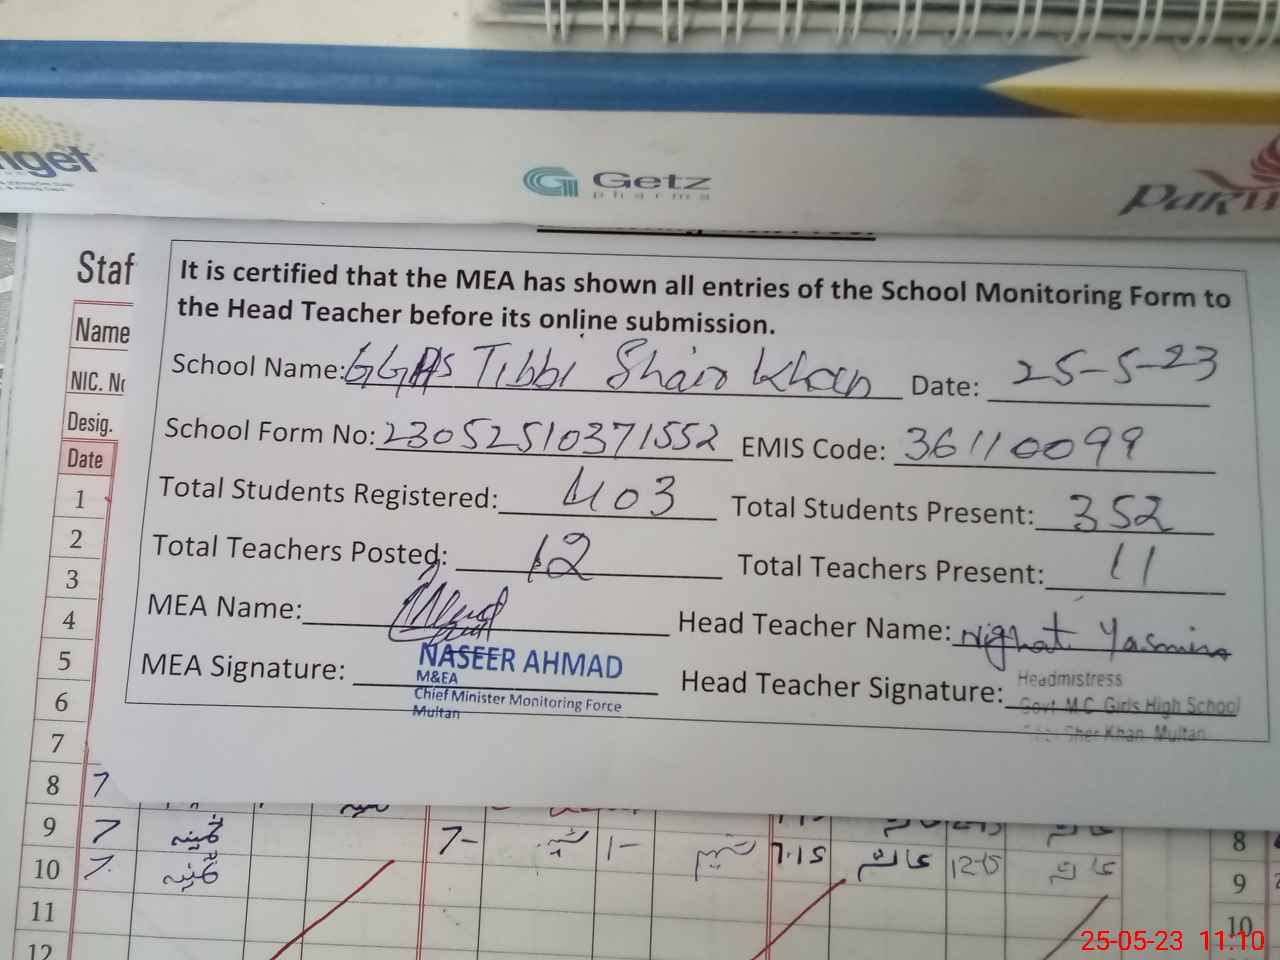 Getz
pharma
Staf
Name
NIC. N
Desig.
Date
1
2
3
4
5
6
7
8 7
9 7
10 7
11
12
It is certified that the MEA has shown all entries of the School Monitoring Form to
the Head Teacher before its online submission.
School Name: GGHS Tibbi Shair Khan Date: 25-5-23
School Form No: 23052510371552 EMIS Code: 36110099
Total Students Registered: 403 Total Students Present: 352
Total Teachers Posted: 12 Total Teachers Present: 11
MEA Name: Head Teacher Name: Nighat Yasmin
MEA Signature: Head Teacher Signature:
NASEER AHMAD
M&EA
Chief Minister Monitoring Force
Multan
Headmistress
Govt. M.C. Girls High School
Sher Khan Multan
7-
1-
7.15
12-15
8
9
10
25-05-23 11:10